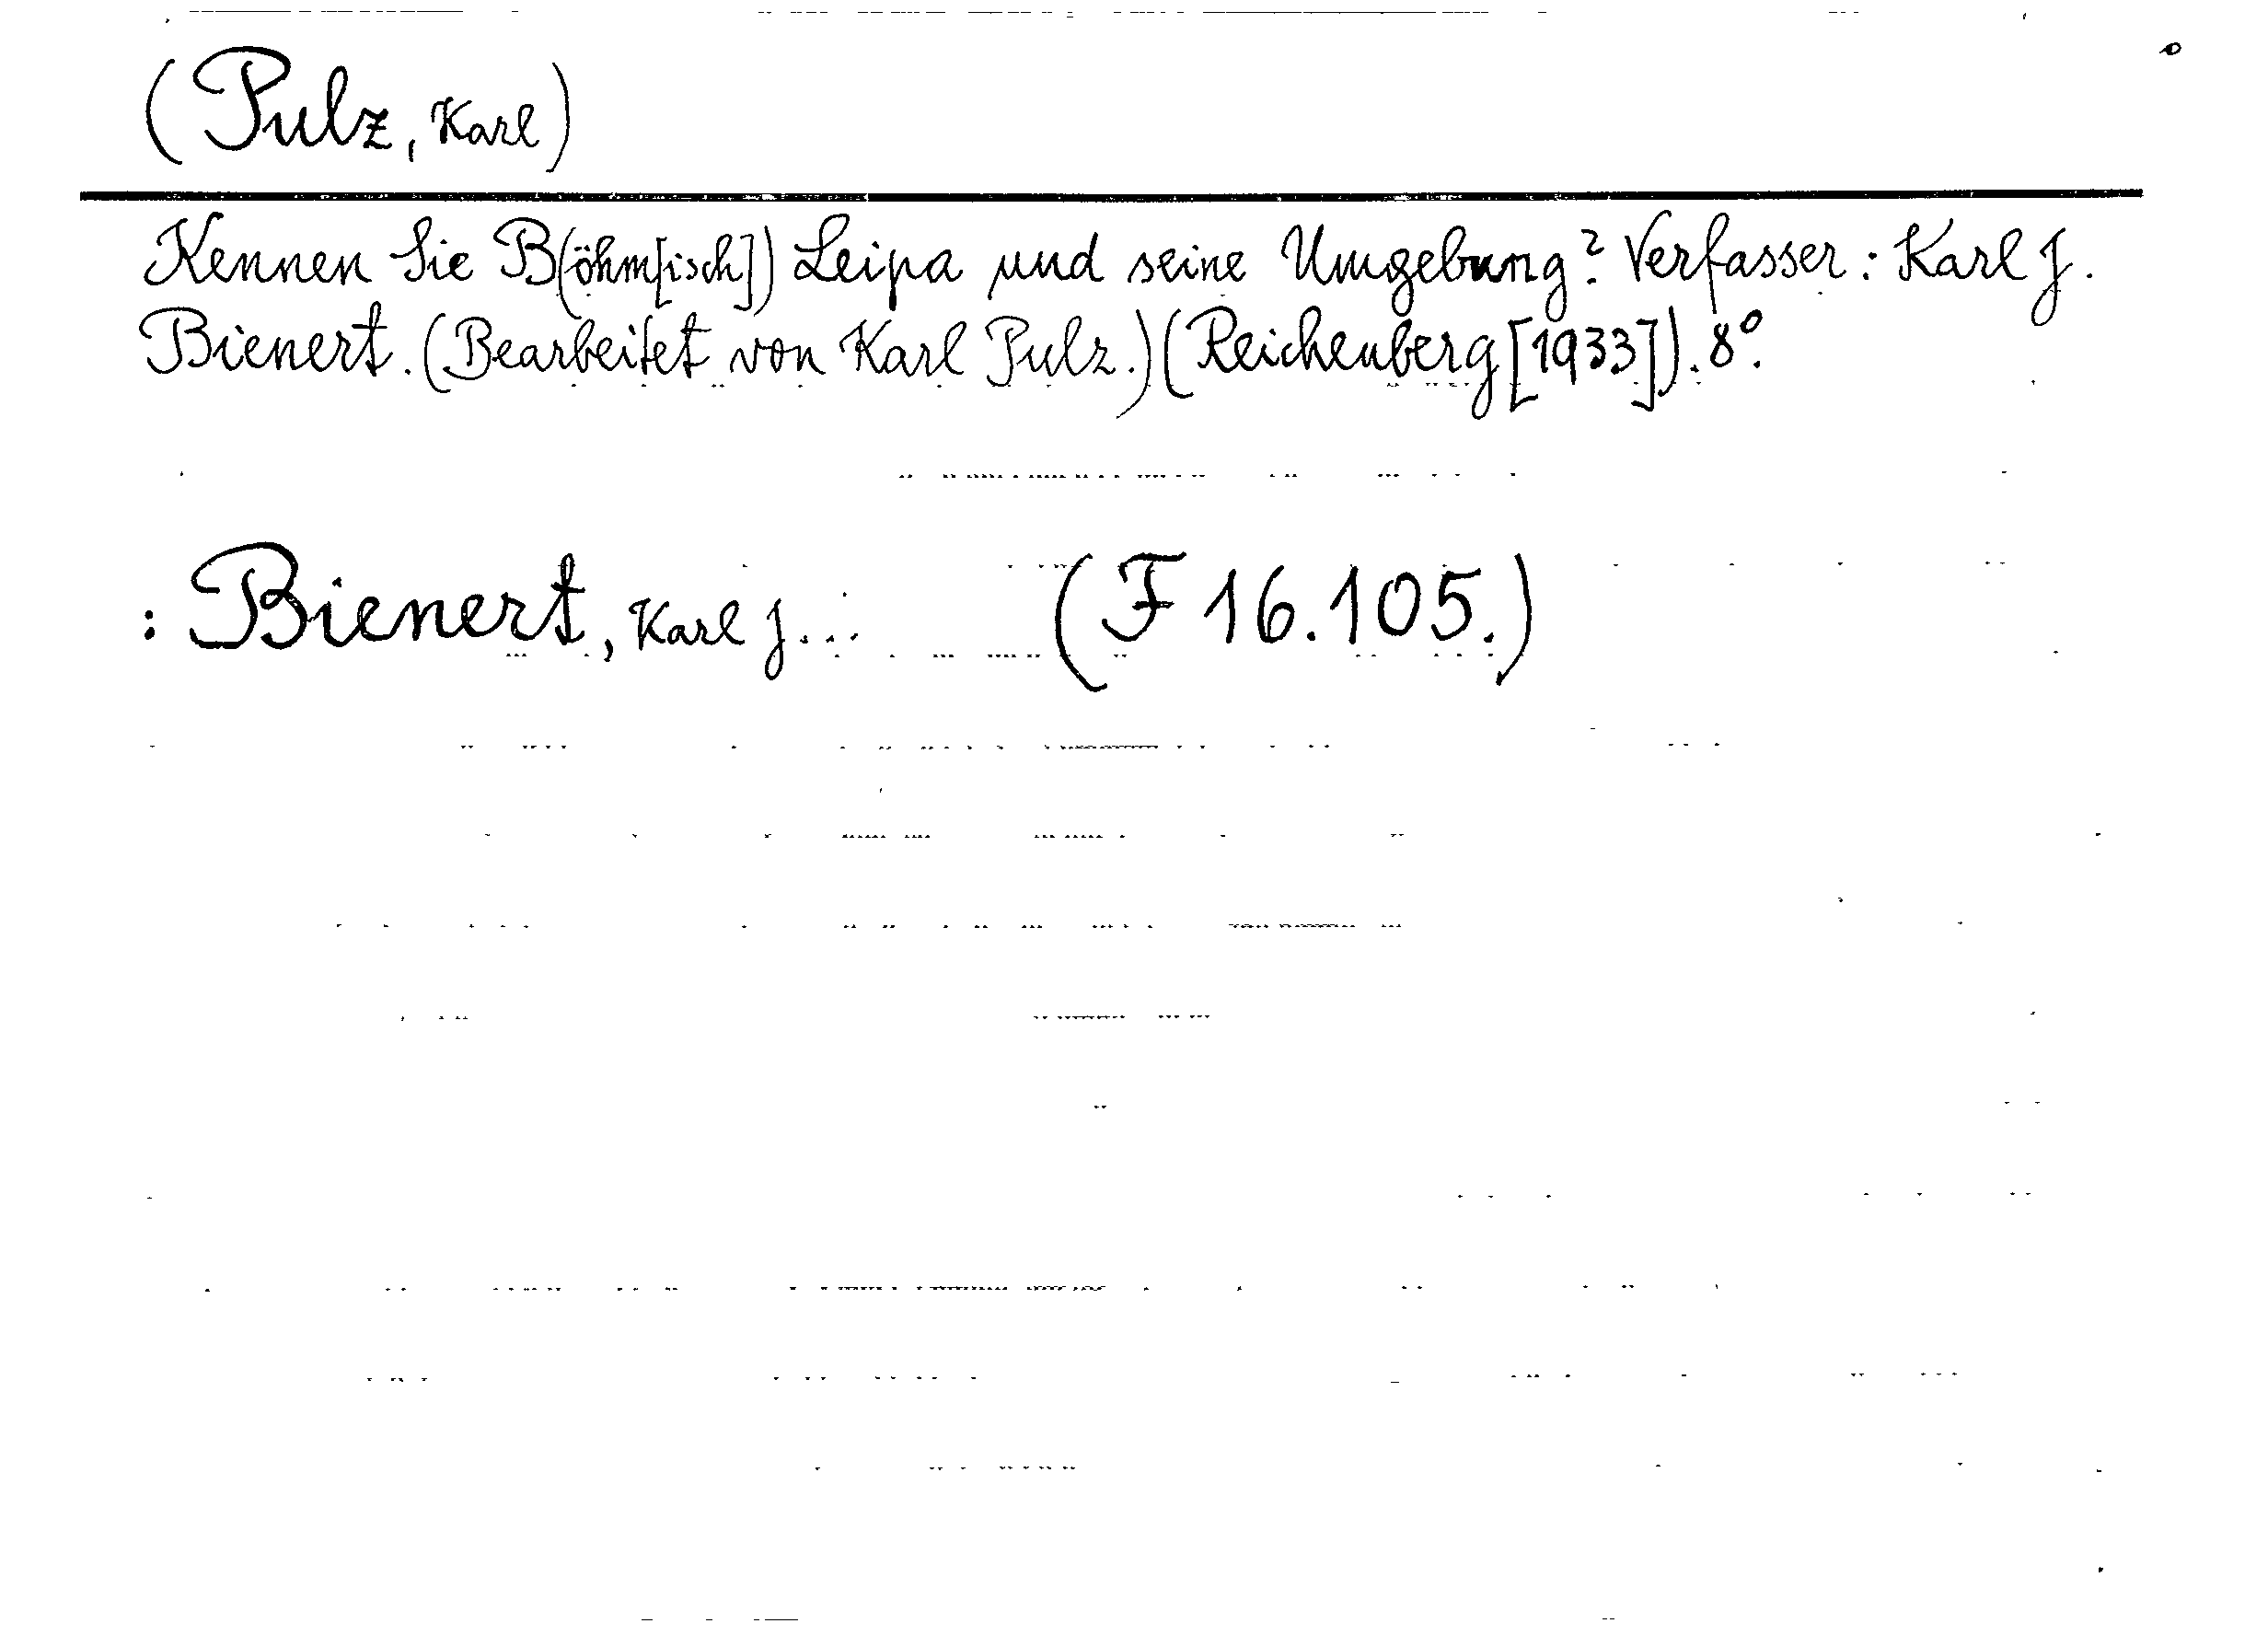 (Pulz, Karl)
Kennen Sie B(öhm[isch]) Leipa und seine Umgebung? Verfasser: Karl J.
Bienert. (Bearbeitet von Karl Pulz.) (Reichenberg [1933]). 8°.
: Bienert, Karl J... (F 16.105.)